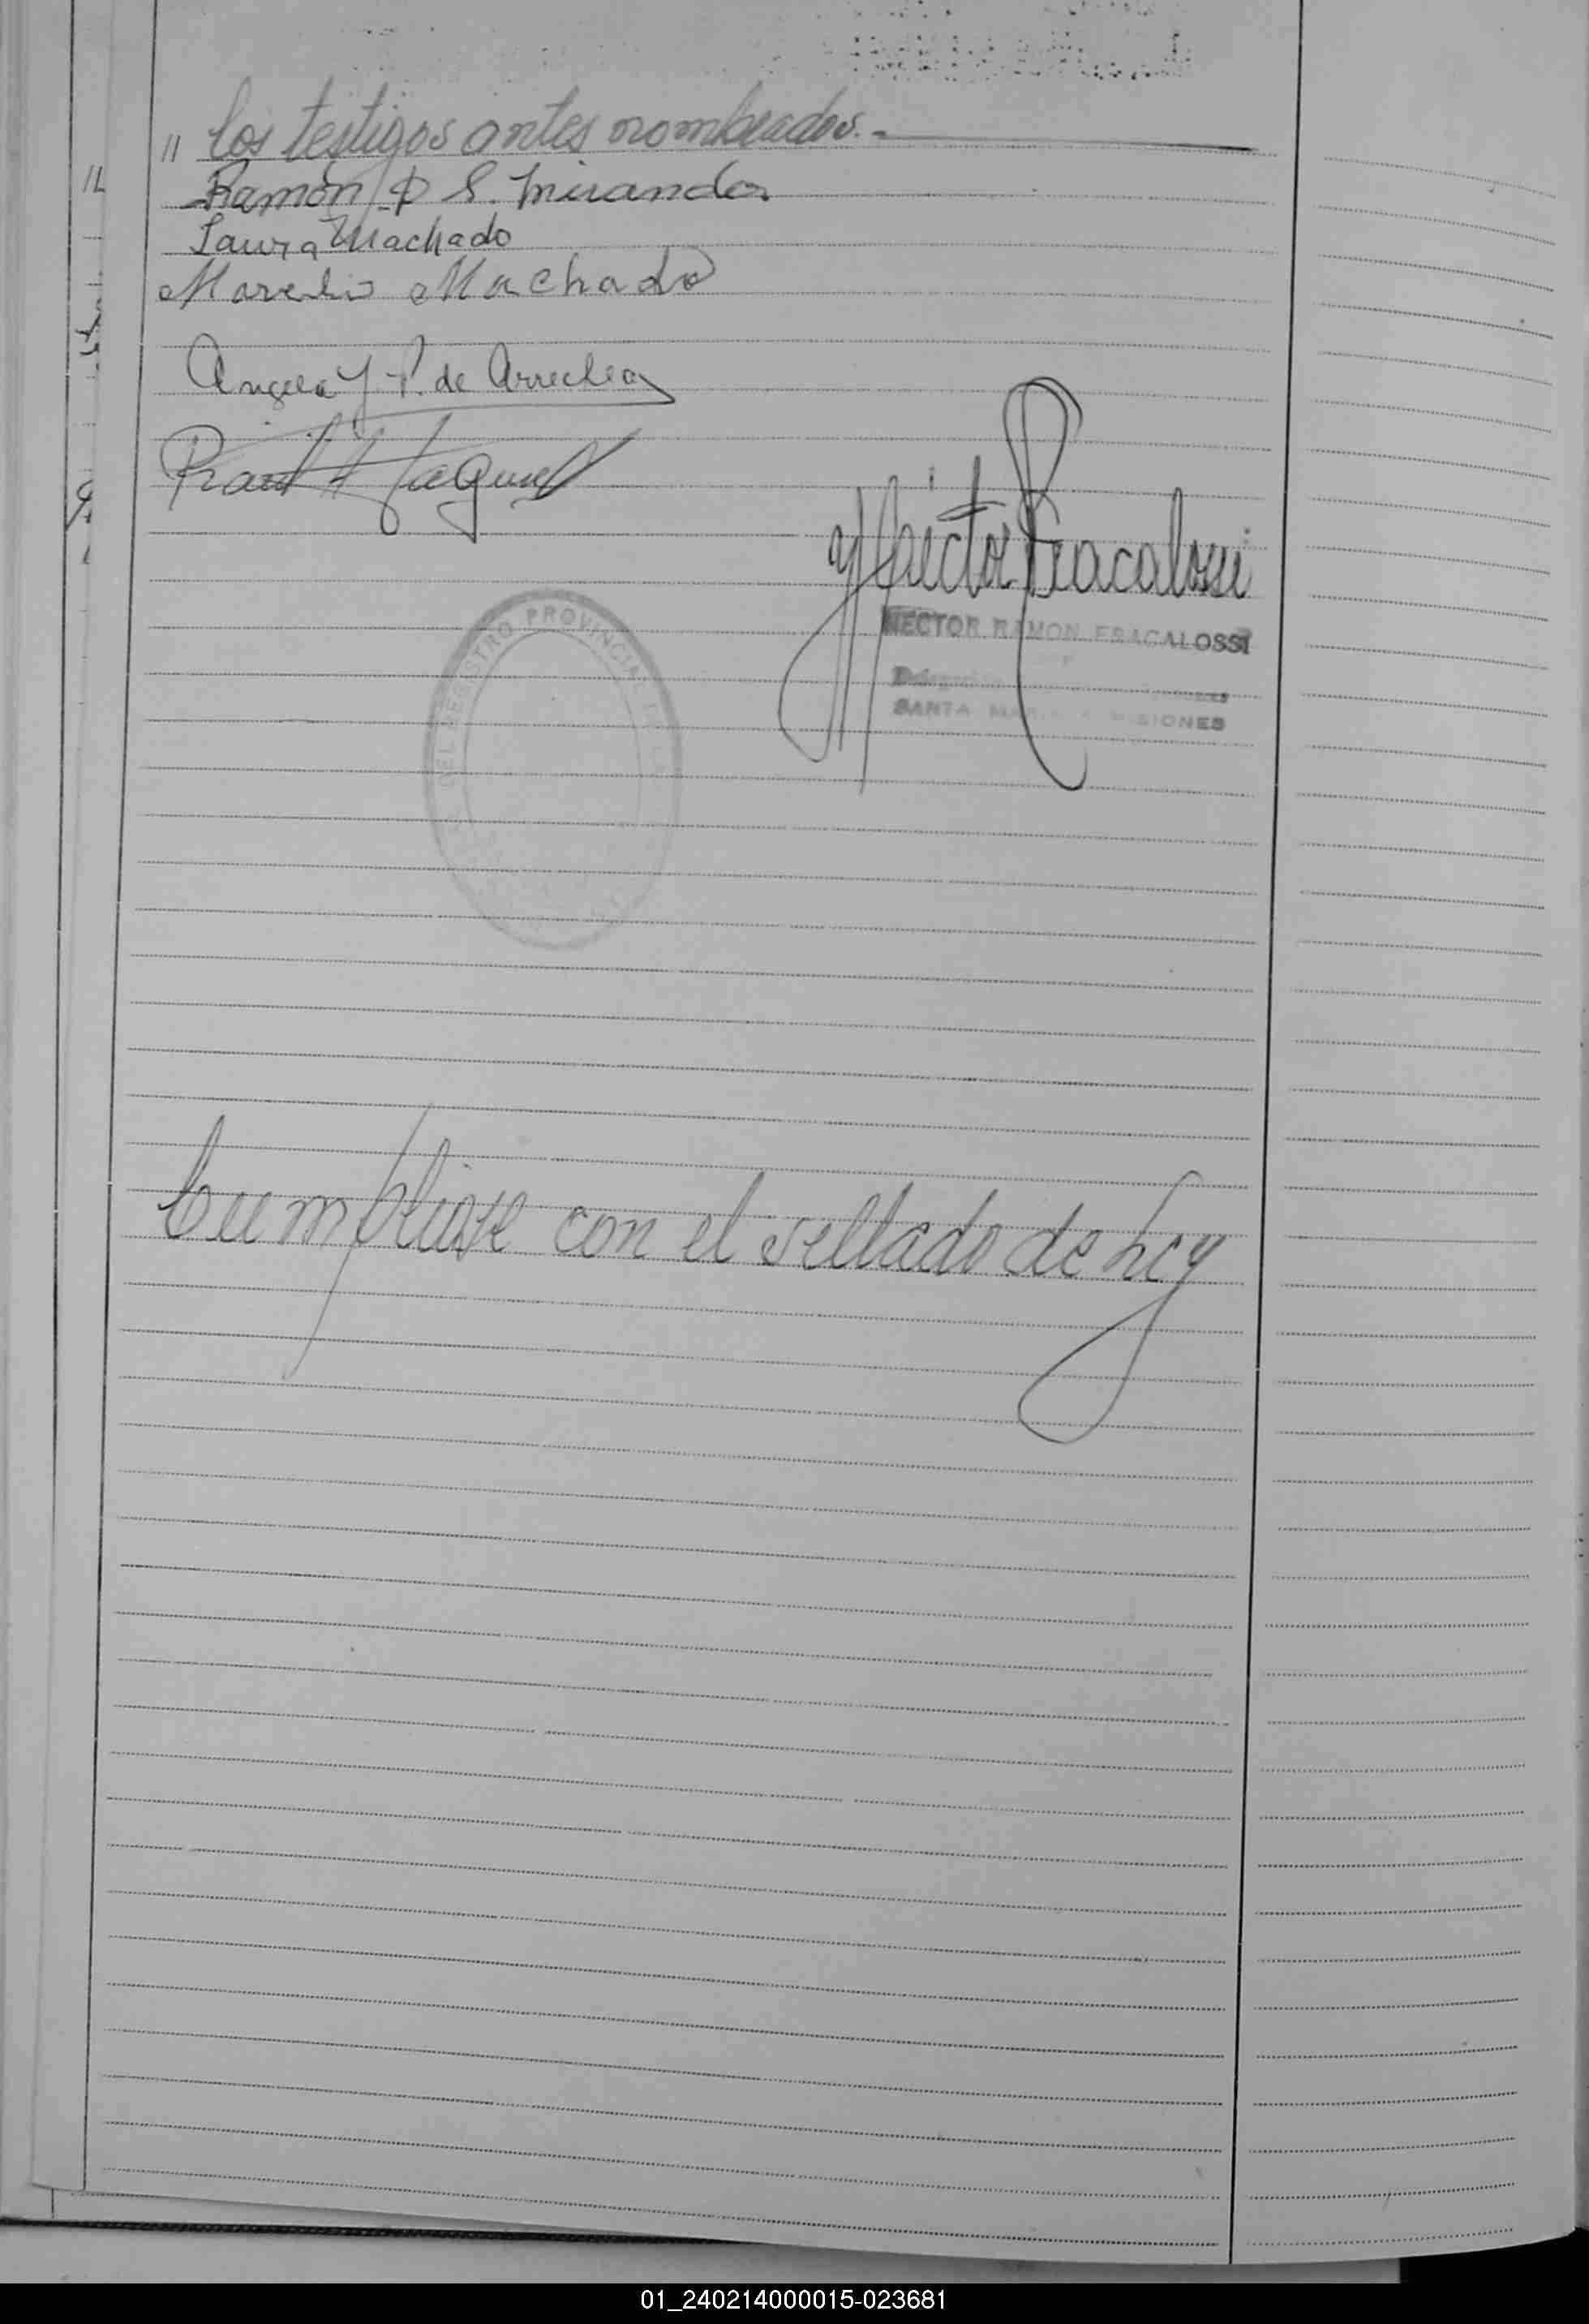 " los testigos antes nombrados.-
Ramón D S. Miranda
Laura Machado
Marcelio Machado
Angela Y P. de Arrechea
Raul A
Hector Fracalossi
HECTOR RAMON FRACALOSSI
SANTA MARIA MISIONES
DEL REGISTRO PROVINCIAL
Cumpliose con el sellado de ley
01_240214000015-023681